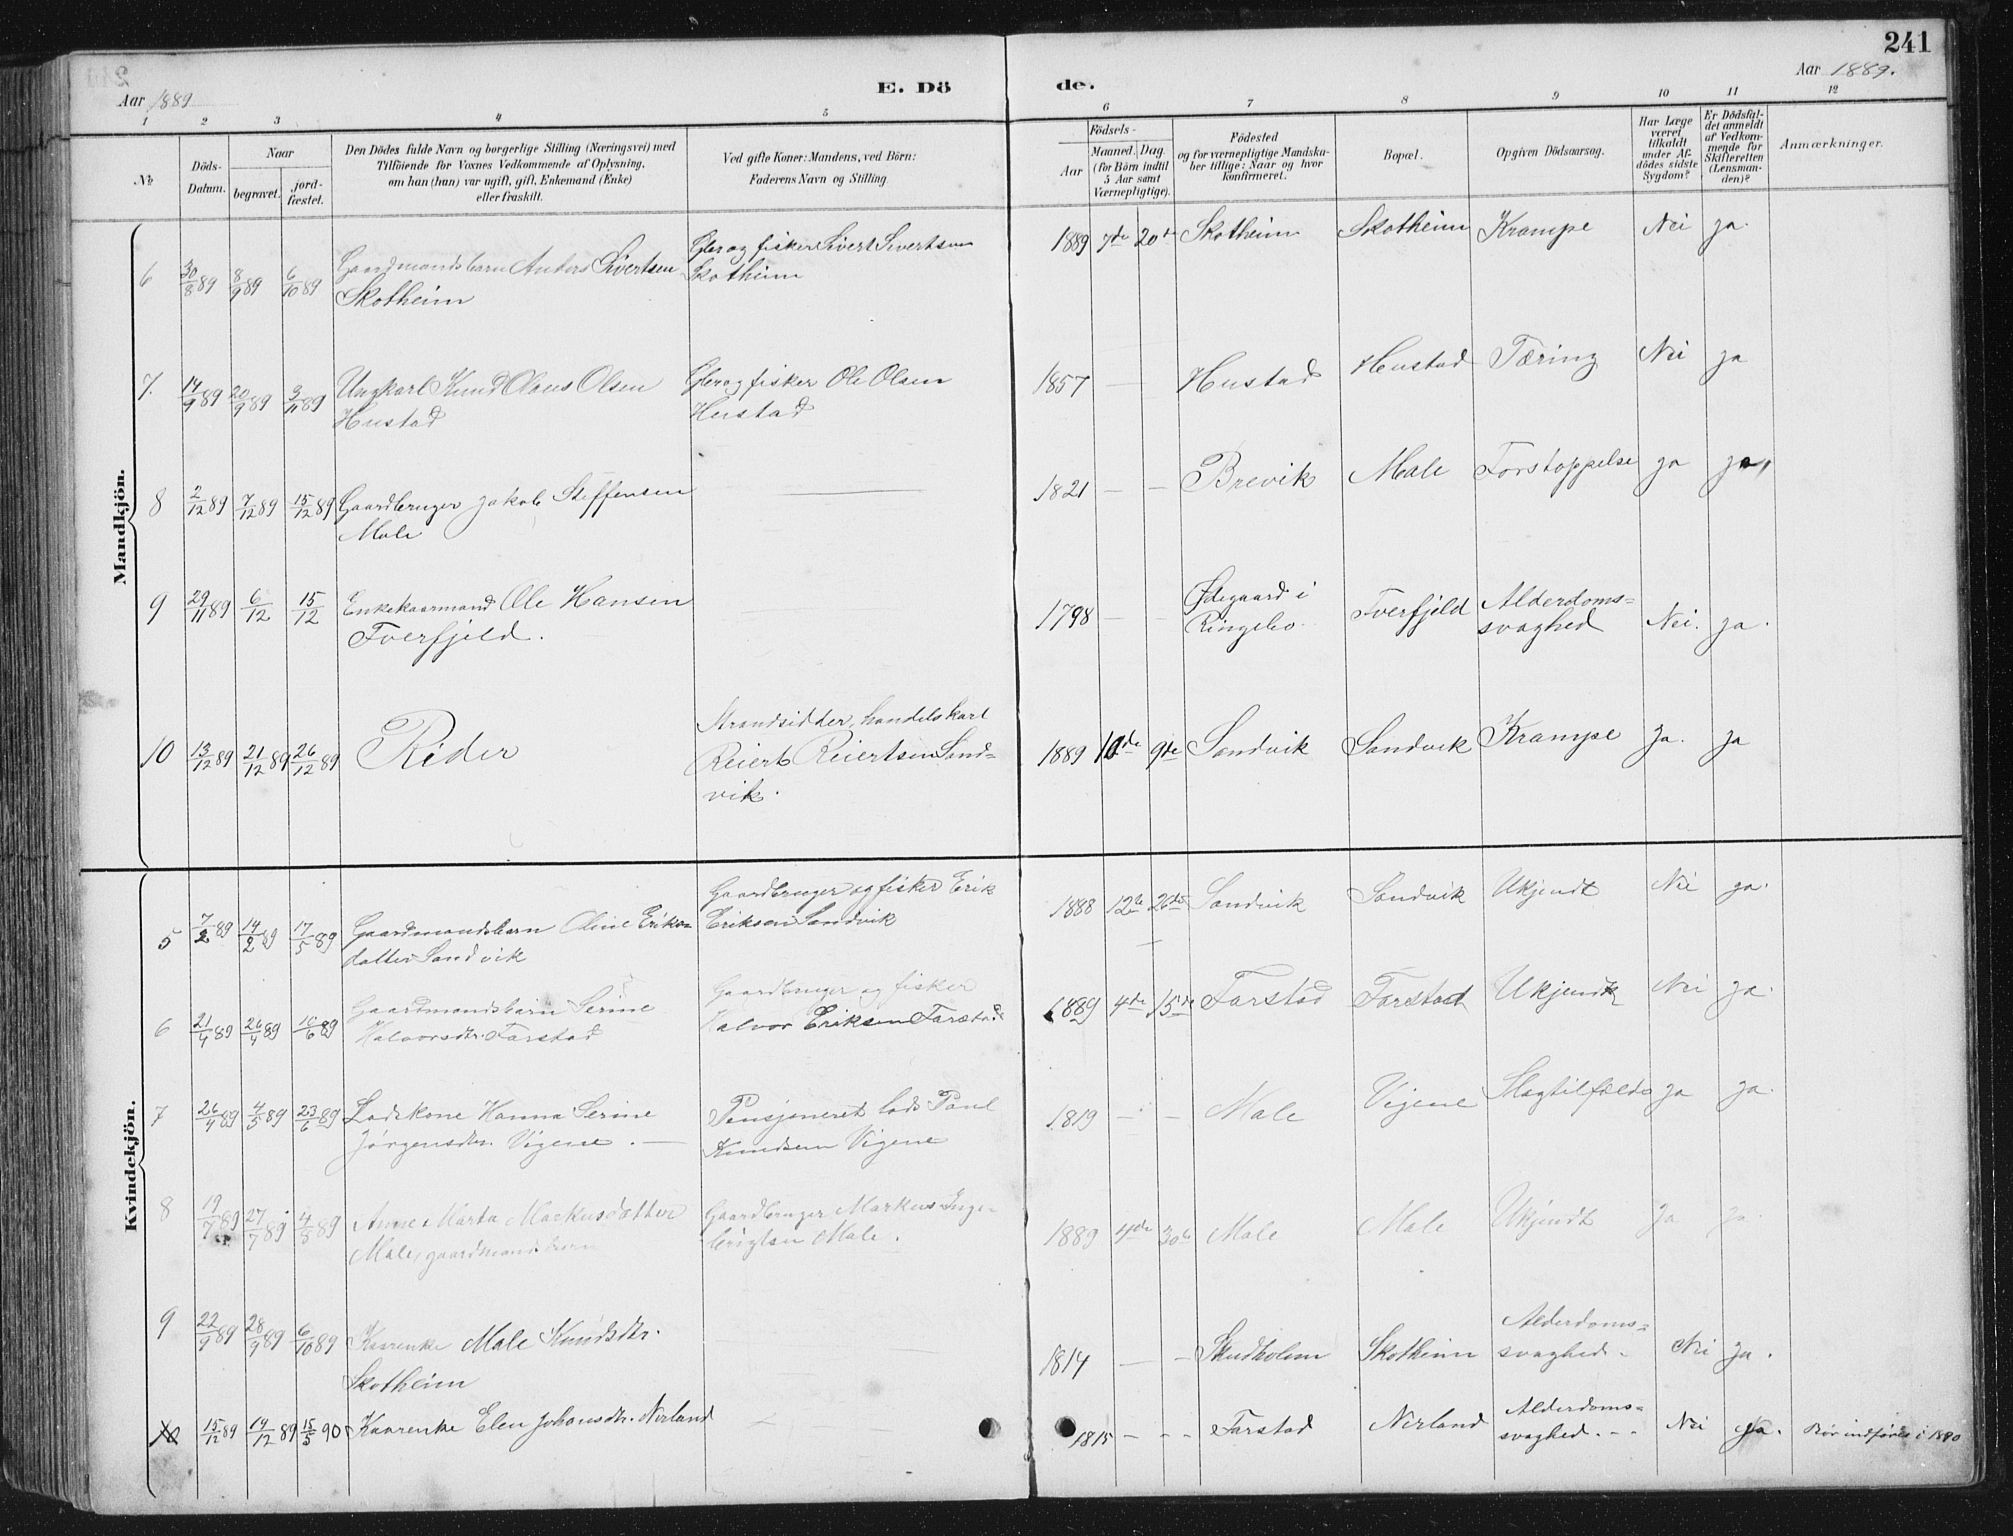 241
Aar 1889
E. Dö
de.
Aar 1889.
1 2 3 4 5 6 7 8 9 10 11 12
No
Döds-
Datum.
Naar
begravet.
jord-
fæstet.
Den Dödes fulde Navn og borgerlige Stilling (Næringsvei) med
Tilföiende for Voxnes Vedkommende af Oplysning,
om han (hun) var ugift, gift, Enkemand (Enke)
eller fraskilt.
Ved gifte Koner: Mandens, ved Börn:
Faderens Navn og Stilling.
Födsels-
Aar
Maaned. Dag.
(for Börn indtil
5 Aar samt
Værnepligtige).
Födested
og for værnepligtige Mandska-
ber tillige: Naar og hvor
konfirmeret.
Bopæl.
Opgiven Dödsaarsag.
Har Læge
været
tilkaldt
under Af-
dödes sidste
Sygdom?
Er Dödsfal-
det anmeldt
af Vedkom-
mende for
Skifteretten
(Lensman-
den)?
Anmærkninger.
Mandkjön.
6 30/8 89 8/9 89 6/10 89 Gaardmandsbarn Anders Sivertsen
Skotheim
Gbr og fisker Sivert Sivertsen
Skotheim
1889 7de 20de Skotheim Skotheim Krampe Nei ja.
7. 14/9 89 20/9 89 3/11 89 Ungkarl Knud Olaus Olsen
Hustad
Gbr og fisker Ole Olsen
Hustad
1857 — Hustad Hustad Tæring Nei ja
8 2/12 89 7/12 89 15/12 89 Gaardbruger Jakob Steffensen
Male
1821 — — Brevik Male Forstoppelse ja ja,
9 29/11 89 6/12 15/12 Enkekaarmand Ole Hansen
Tverfjeld.
1798 — — Ødegaard i
Ringebo
Tverfjeld Alderdoms=
svaghed Nei. ja.
10 13/12 89 21/12 89 26/12 89 Reder
Strandsidder, handelskarl
Reiert Reiertsen Sand=
vik.
1889 10de 9de Sandvik Sandvik Krampe Ja. ja
Kvindekjön.
5 7/2 89 14/2 89 17/5 89 Gaardmandsbarn Oline Eriks=
datter Sandvik
Gaardbruger og fisker Erik
Eriksen Sandvik
1888 12te 26de Sandvik Sandvik Ukjendt Nei ja.
6 21/4 89 26/4 89 16/6 89 Gaardmandsbarn Serine
Halvorsdtr. Farstad
Gaardbruger og fisker
Halvor Eriksen Farstad
1889 4de 15de Farstad Farstad Ukjendt Nei ja.
7 26/4 89 4/5 89 23/6 89 Lodskone Hanna Serine
Jørgensdtr. Vigene. —
Pensjoneret lods Paul
Knudsen Vigene
1819 — — Male Vigene Slagtilfælde ja ja.
8 19/7 89 27/7 89 4/8 89 Anne Marta Markusdatter
Male, gaardmandsbarn
Gaardbruger Markus Inge=
brigtsen Male.
1889 4de 30te Male Male Ukjendt ja ja.
9 22/9 89 28/9 89 6/10 89 Kaarenke Male Knudsdtr.
Skotheim
1814 — — Skudholm Skotheim Alderdoms=
svaghed - Nei ja.
10 15/12 89 19/12 89 15/5 90 Kaarenke Elen Johansdtr. Nerland
1815 - - - Farstad Nerland Alderdoms=
svaghed. - - Nei ja. Bør indføres i 1890